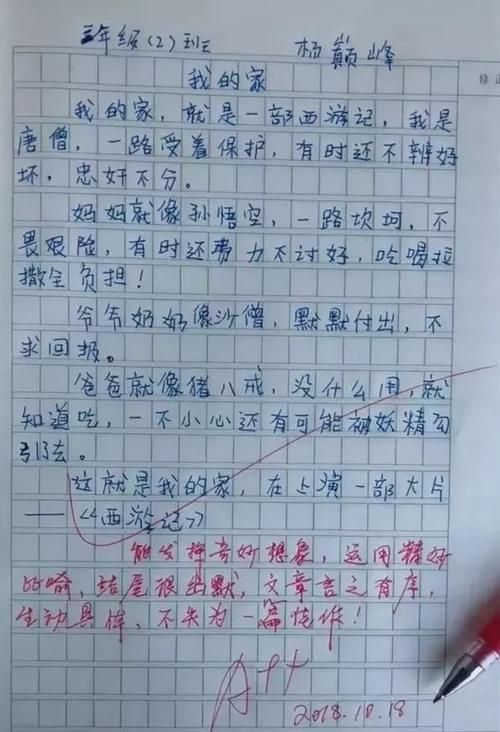 三年级(2)班 杨巅峰
我的家
我的家，就是一部西游记，我是
唐僧，一路受着保护，有时还不辨好
坏，忠奸不分。
妈妈就像孙悟空，一路坎坷，不
畏艰险，有时还费力不讨好，吃喝拉
撒全负担！
爷爷奶奶像沙僧，默默付出，不
求回报。
爸爸就像猪八戒，没什么用，就
知道吃，一不小心还有可能被妖精勾
引了去。
这就是我的家，在上演一部大片
——《西游记》
能发挥奇妙想象，运用精妙
比喻，结尾很幽默，文章言之有序，
生动具体，不失为一篇佳作！
A++
2018.10.18